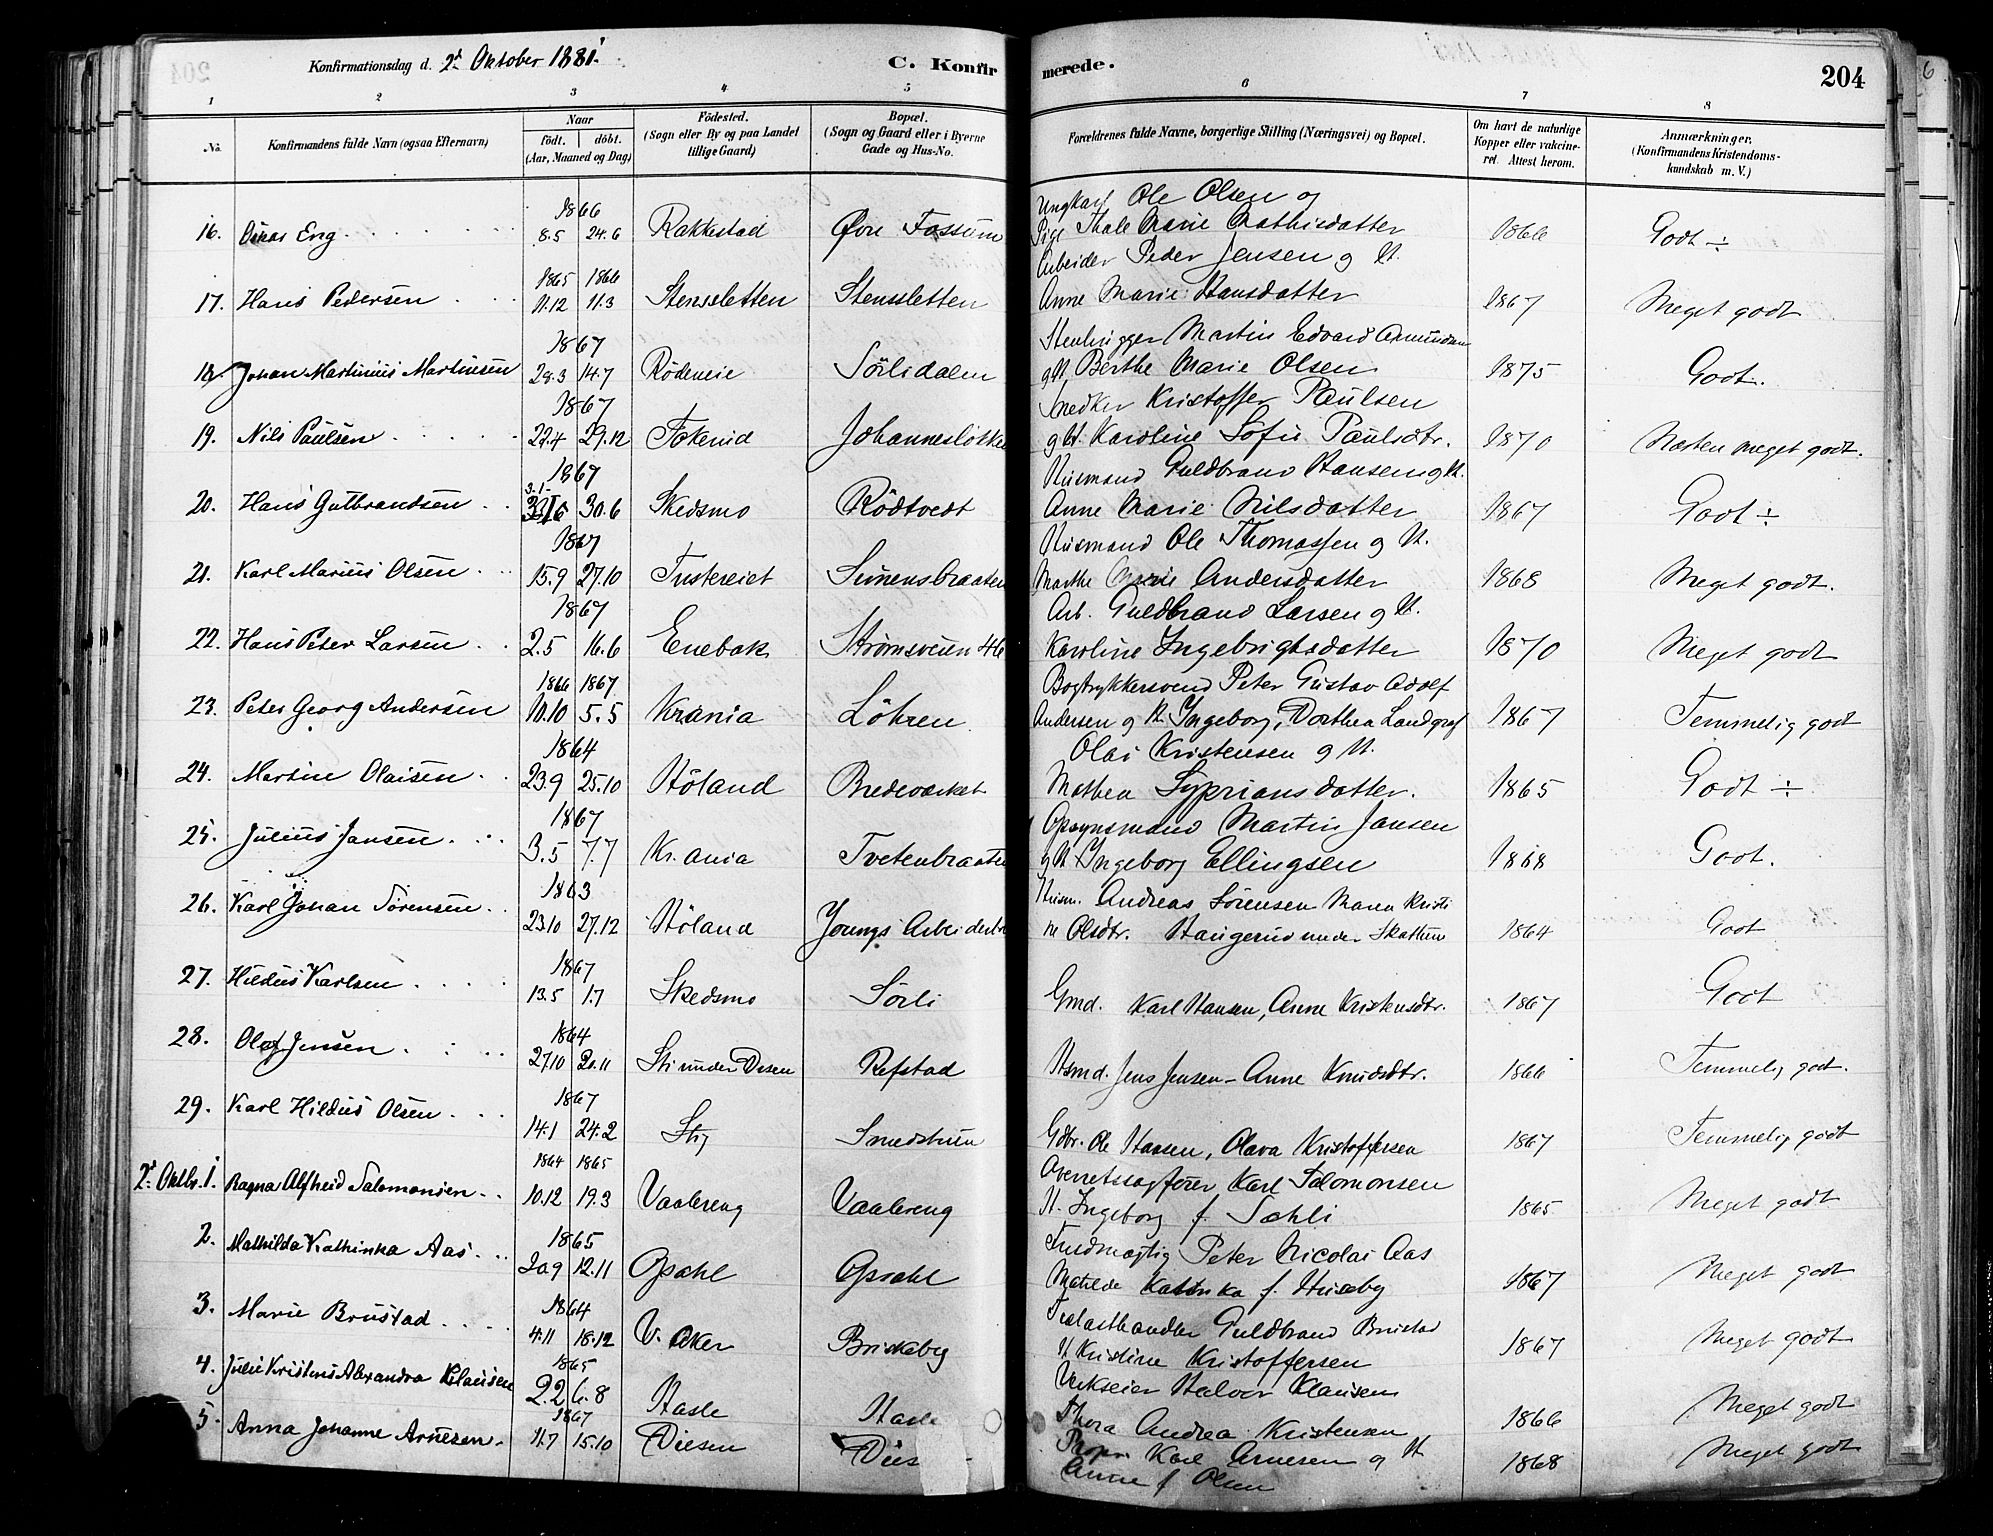 Konfirmationsdag d. 2den Oktober 1881. C. Konfirmerede. 204
1 2 3 4 5 6 7 8
No. Konfirmandens fulde Navn (ogsaa Efternavn) Naar født. døbt. (Aar, Maaned og Dag) Fødested. (Sogn eller By og paa Landet tillige Gaard) Bopæl. (Sogn og Gaard eller i Byerne Gade og Hus-No. Forældrenes fulde Navne, borgerlige Stilling (Næringsvei) og Bopæl. Om havt de naturlige Kopper eller vakcineret. Attest herom. Anmærkninger. (Konfirmandens Kristendomskundskab m. V.)
16. Oskar Eng 1866 8.5 24.6 Rakkestad Øvre Fossum Ungkarl Ole Olsen og Pige Thale Marie Mathisdatter 1866 Godt ÷
17. Hans Pedersen 1865 11.12 1866 11.3 Stensletten Stensletten Arbeider Peder Jensen og H. Anne Marie Hansdatter 1867 Meget godt
18. Johan Martinius Martinsen 1867 28.3 14.7 Rödeneie Sörlidalen Stenhugger Martin Edvard Asmundsen og H. Berthe Marie Olsen 1875 Godt.
19. Nils Paulsen 1867 27.4 29.12 Fokerud Johannesløkke Snedker Kristoffer Paulsen og H. Karoline Sofie Paulsdtr. 1870 Næsten meget godt.
20. Hans Gulbrandsen 1867 3.1 30.6 Skedsmo Rödtvedt Husmand Guldbrand Hansen og H. Anne Marie Nilsdatter 1867 Godt ÷
21. Karl Marius Olsen 1867 15.9 27.10 Tustereiet Simensbraaten Husmand Ole Thomassen og H. Marthe Marie Andersdatter 1868 Meget godt.
22. Hans Peter Larsen 1867 2.5 16.6 Enebak Strømsveien 46 Arb. Guldbrand Larsen og H. Karoline Ingebrigtsdatter 1870 Meget godt
23. Peter Georg Andersen 1866 10.10 1867 5.5 Krania Löhren Bogtrykkersvend Peter Gustav Adolf Andersen og H. Ingeborg Dorthea Landgraf 1867 Temmelig godt
24. Martin Olaisen 1864 23.9 25.10 Höland Bredeværket Olai Kristensen og H. Mathea Sypriansdatter. 1865 Godt ÷
25. Julius Jansen 1867 3.5 7.7 Kr.ania Tvetenbraaten Opsynsmand Martin Jansen og H. Ingeborg Ellingsen 1868 Godt.
26. Karl Johan Sörensen 1863 23.10 27.12 Höland Youngs Arbeiderb Husm. Andreas Sörensen Maren Kristine Olsdtr. Haugerud under Skattum 1864 Godt
27. Hildus Karlsen 1867 13.5 1.7 Skedsmo Sörli Gmd. Karl Hansen, Anne Kristensdtr. 1867 Godt
28. Olaf Jensen 1864 27.10 20.11 Sti under Disen Refstad Hsmd. Jens Jensen - Anne Knudsdtr. 1866 Temmelig godt.
29. Karl Hildus Olsen 1867 14.1 24.2 Stig Smedstuen Gdbr. Ole Hansen, Olava Kristoffersen 1867 Temmelig godt
2den Oktbr. 1. Ragna Alfheid Salomonsen 1864 10.12 1865 19.3 Vaalereng Vaalereng Overretssagfører Karl Salomonsen H. Ingeborg f. Sæhli 1865 Meget godt
2. Mathilda Kathinka Aas 1865 20.9 12.11 Opsahl Opsahl Fuldmægtig Peter Nicolai Aas Matilde Katinka f. Huseby 1867 Meget godt
3. Marie Brustad 1864 4.11 18.12 V. Aker Briskeby Trælasthandler Guldbrand Brustad H. Kristine Kristoffersen 1867 Meget godt
4. Julie Kristens Alexandra Klausen 1865 2.2 6.8 Hasle Hasle Verkseier Halvor Klausen Thora Andrea Kristensen 1866 Meget godt
5. Anna Johanne Arnesen 1867 11.7 15.10 Diesen Dies Propr. Karl Arnesen og H. Anne f. Olsen 1868 Meget godt